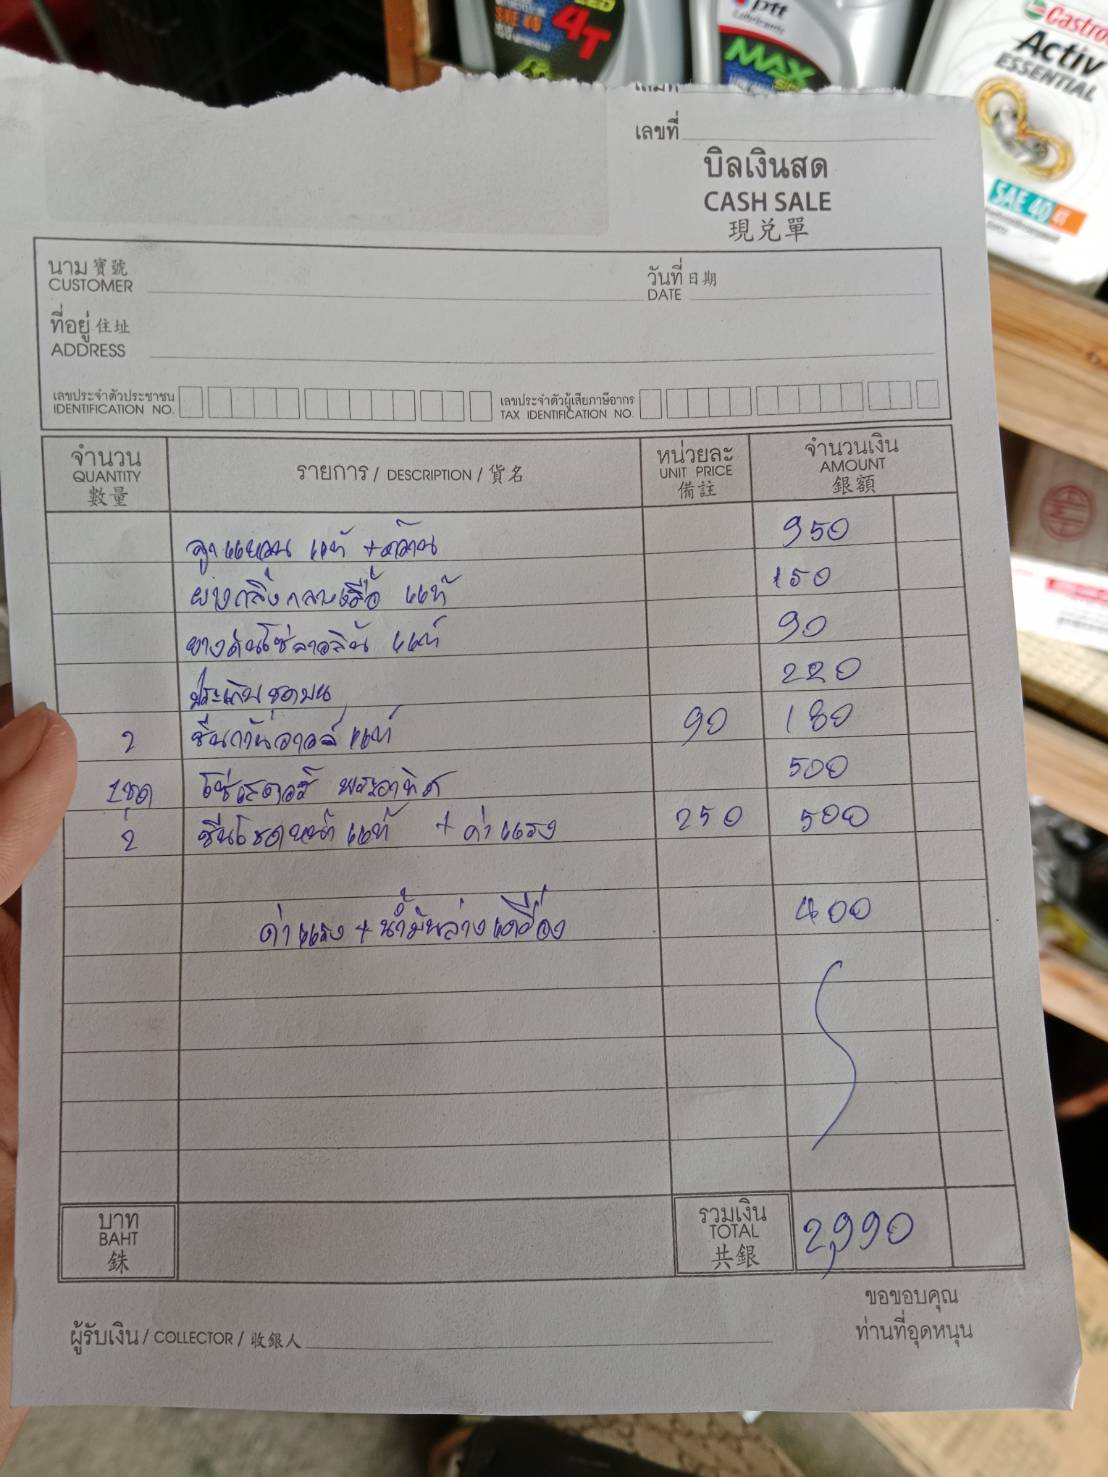 SAE 40
4T
ptt
Lubricants
MAX
Castrol
Activ
ESSENTIAL
SAE 40 4T
เล่มที่
เลขที่
บิลเงินสด
CASH SALE
現兌單
นาม 寶號
CUSTOMER
วันที่ 日期
DATE
ที่อยู่ 住址
ADDRESS
เลขประจำตัวประชาชน
IDENTIFICATION NO.
เลขประจำตัวผู้เสียภาษีอากร
TAX IDENTIFICATION NO.
จำนวน
QUANTITY
數量
รายการ / DESCRIPTION / 貨名
หน่วยละ
UNIT PRICE
備註
จำนวนเงิน
AMOUNT
銀額
ลูก แหวน แท้ + คว้าน 950
ยางกลิ้งกลางเสื้อ แท้ 150
ยางดันโซ่ราวลิ้น แท้ 90
ประเก็นชุดบน 220
2 ซีนก้านวาล์ว แท้ 90 180
1ชุด โซ่สเตอร์ พระอาทิตย์ 500
2 ซีนโชคหน้า แท้ + ค่าแรง 250 500
ค่าแรง + น้ำมันล่างเครื่อง 400
บาท
BAHT
銖
รวมเงิน
TOTAL
共銀
2,990
ผู้รับเงิน / COLLECTOR / 收銀人
ขอขอบคุณ
ท่านที่อุดหนุน